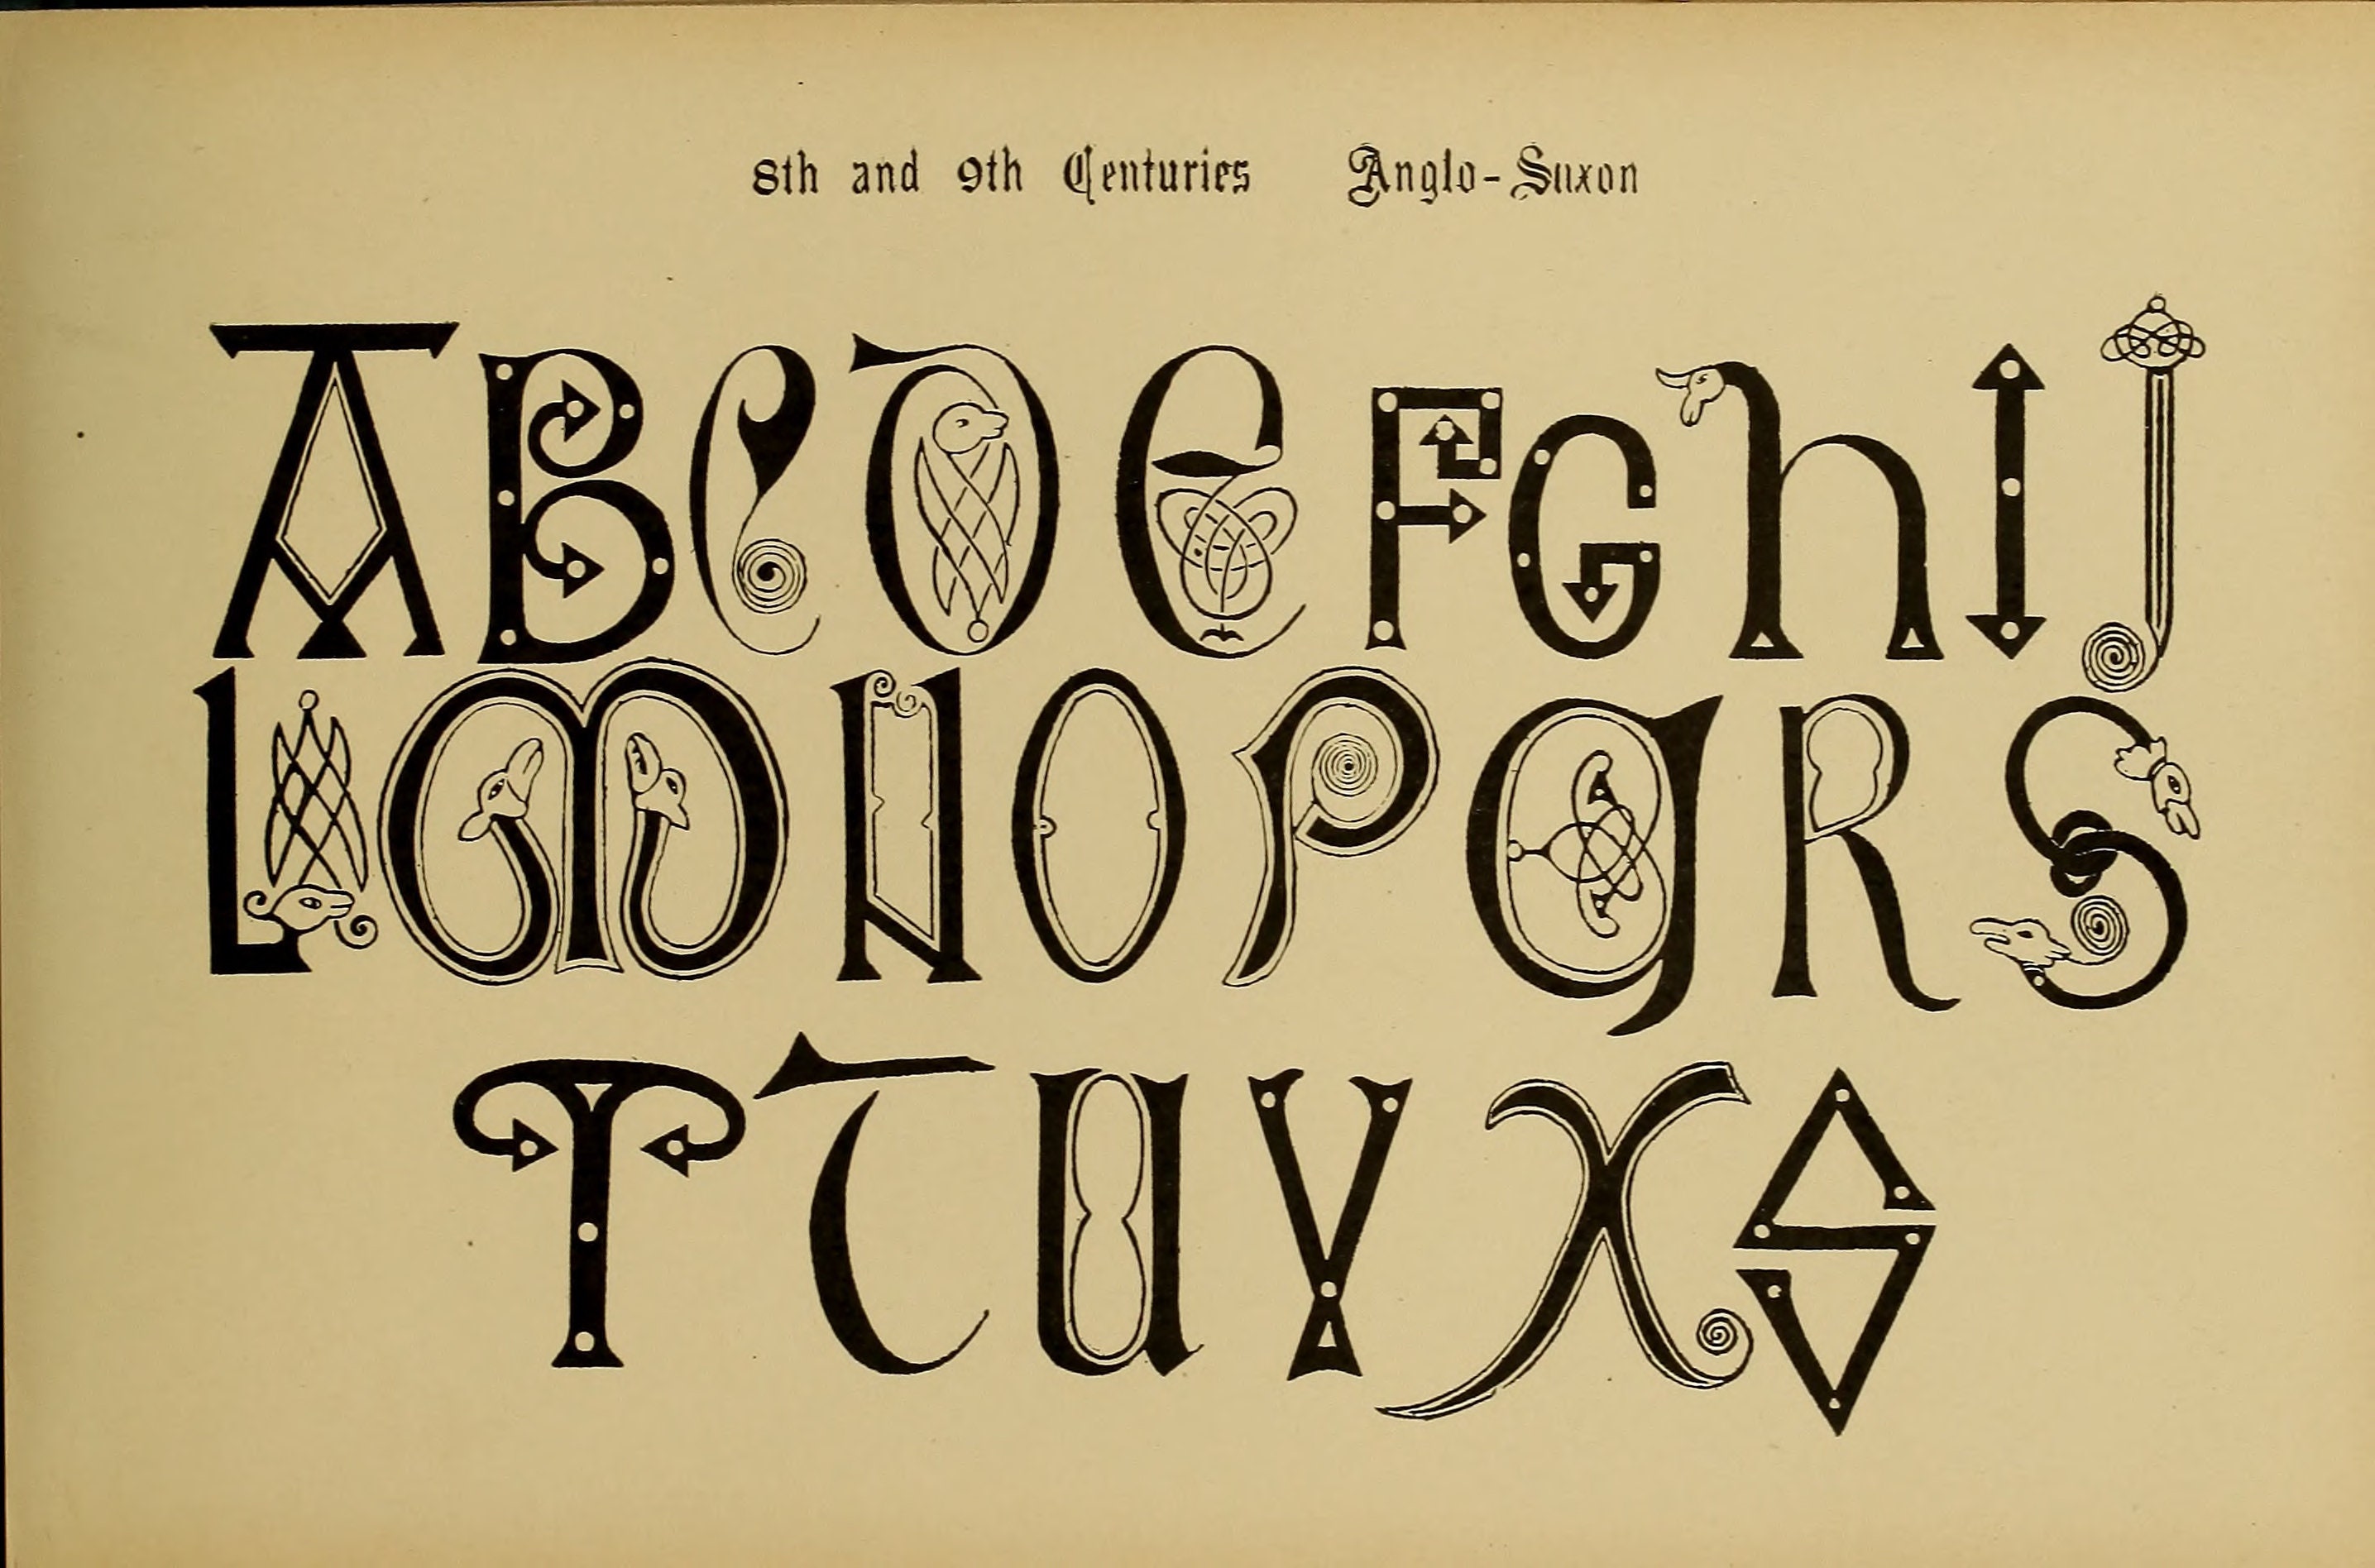 8th and 9th Centuries Anglo-Saxon
A B C D E F G H I J
L M N O P Q R S
T T U V X S